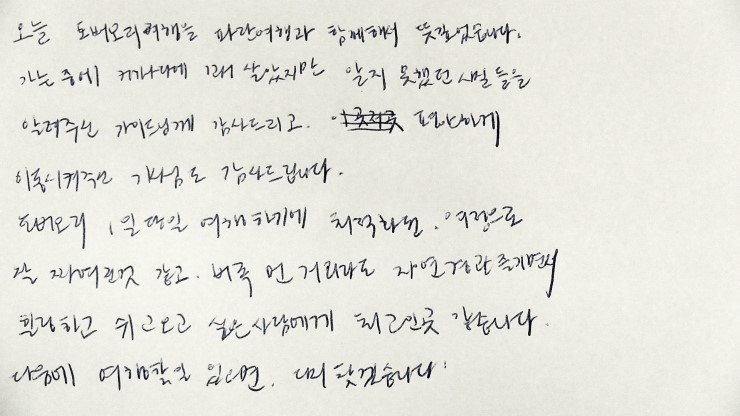 오늘 토버모리여행을 파란여행과 함께해서 뜻깊었습니다.
가는 중에 캐나다에 오래 살았지만 알지 못했던 사실들을
알려주신 가이드님께 감사드리고. 편안하게
이동시켜주신 기사님도 감사드립니다.
토버모리 1일 당일 여행하기에 최적화된 여정으로
잘 짜여진것 같고. 비록 먼 거리라도 자연경관 즐기면서
힐링하고 쉬고오고 싶은사람에게 최고인곳 같습니다.
다음에 여행할일 있다면. 다시 찾겠습니다!